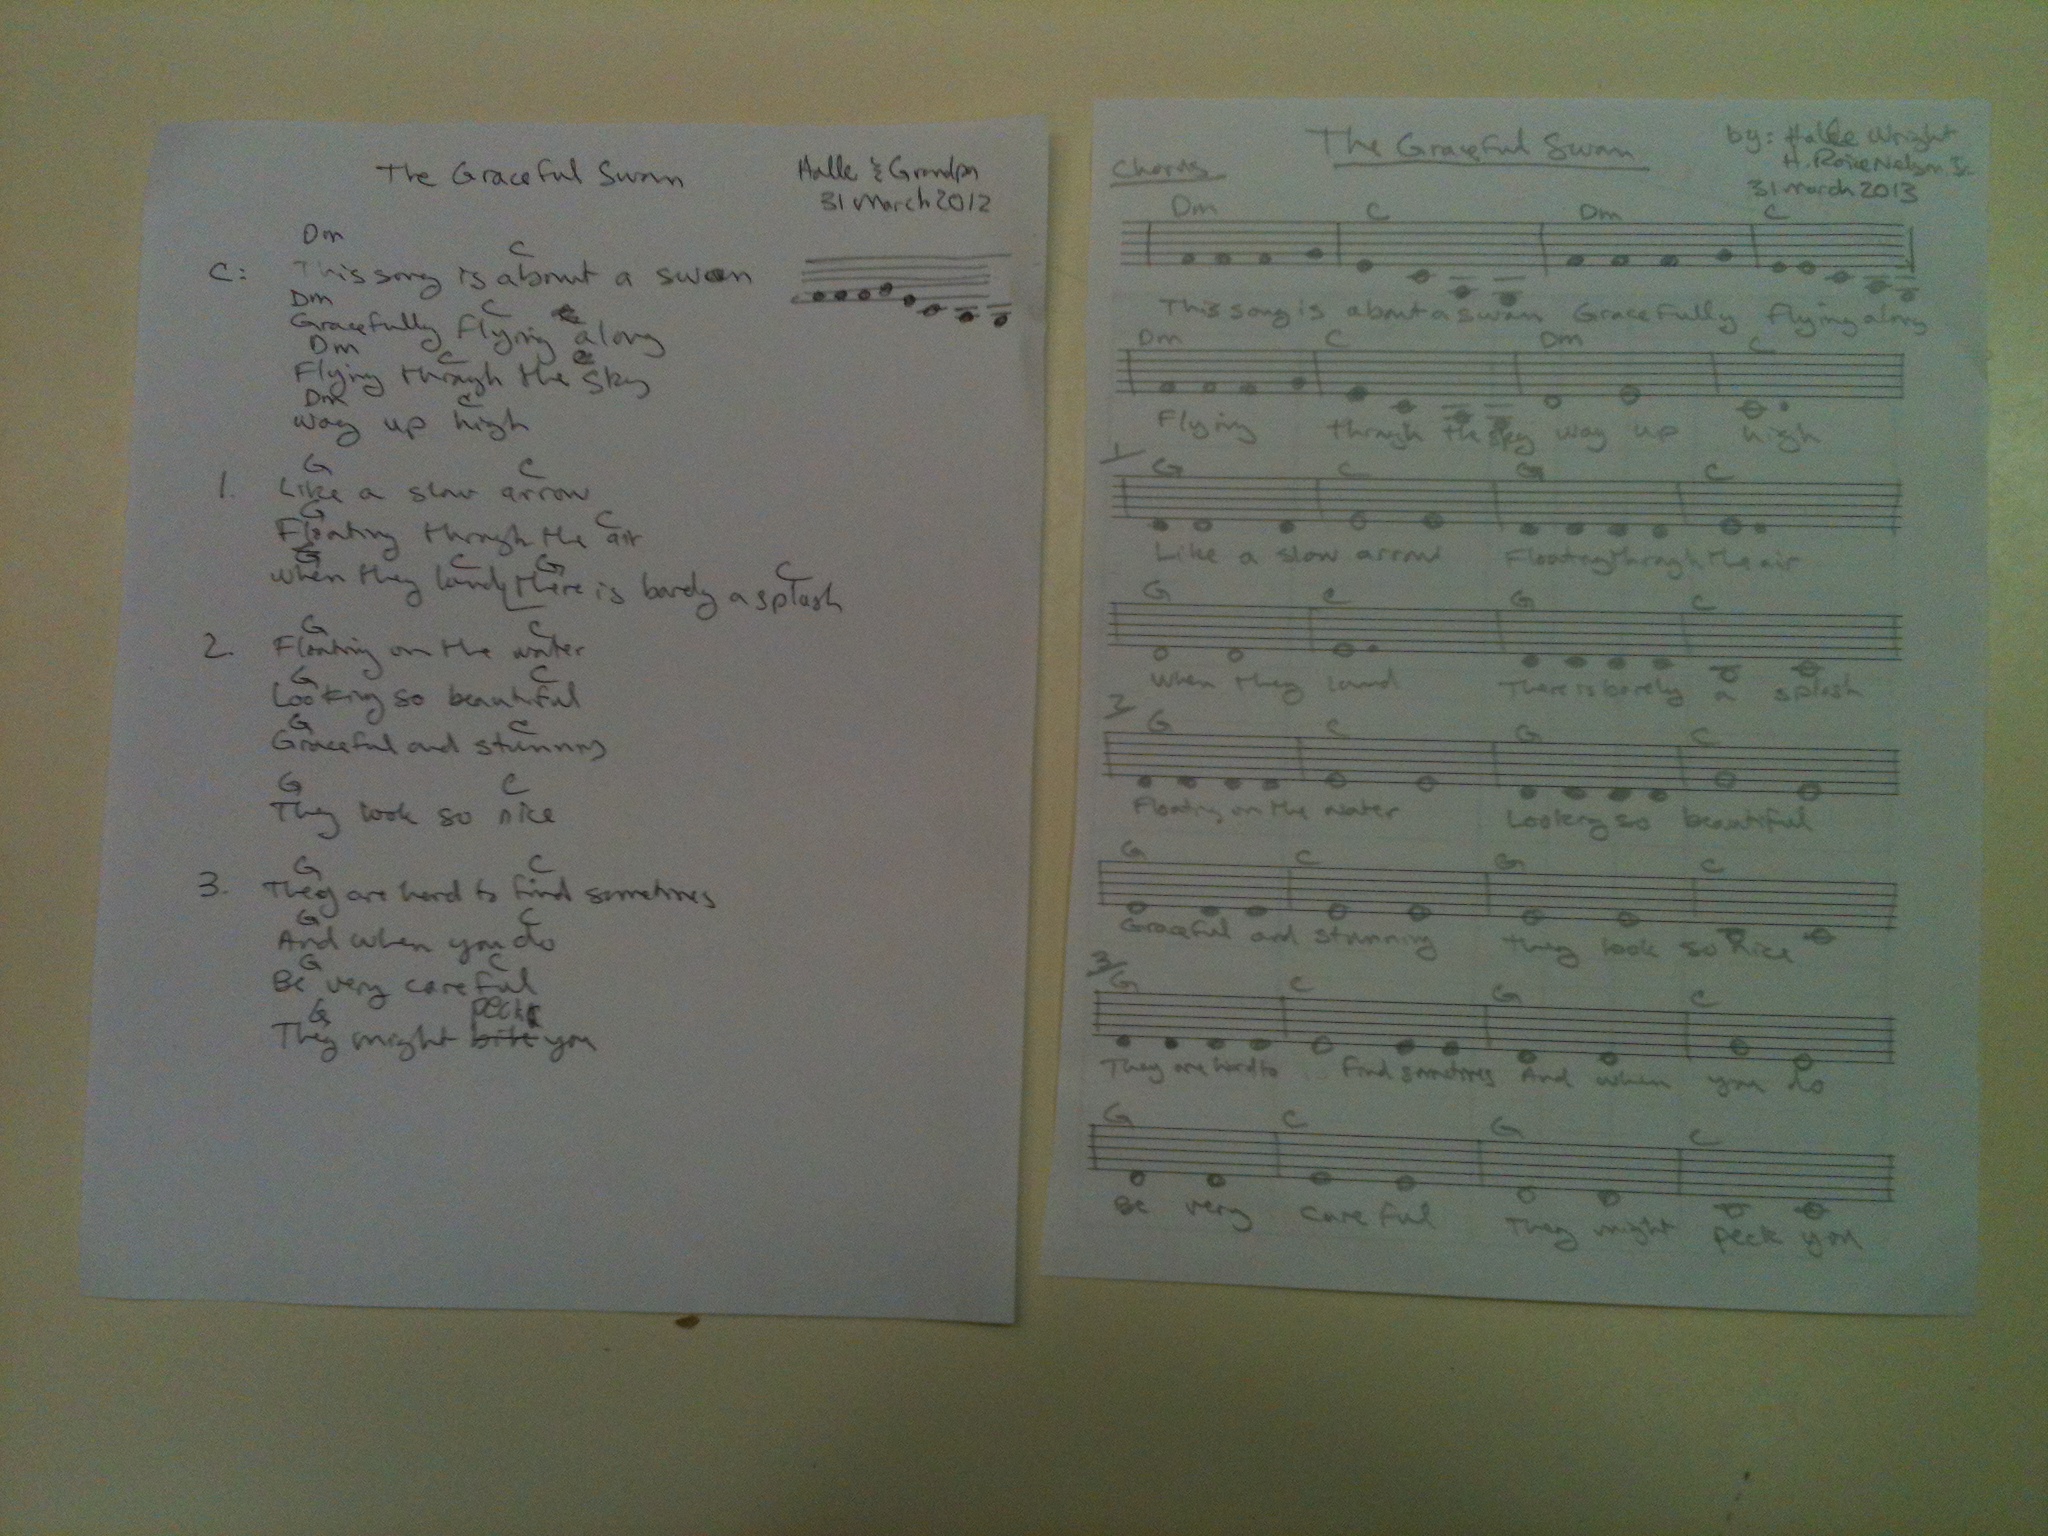 The Graceful Swan
Halle & Grandpa
31 March 2012
Dm C
C: This song is about a swan
Dm C
Gracefully flying along
Dm C
Flying through the sky
Dm C
Way up high
G C
1. Like a slow arrow
G C
Floating through the air
G C G C
When they land, there is barely a splash
G C
2. Floating on the water
G C
Looking so beautiful
G C
Graceful and stunning
G C
They look so nice
G C
3. They are hard to find sometimes
G C
And when you do
G C
Be very careful
G peck
They might bite you
The Graceful Swan
by: Halle Wright
H. Nelson Jr.
31 March 2013
Chorus
Dm C Dm C
This song is about a swan Gracefully flying along
Dm C Dm C
Flying through the sky way up high
1/ G C G C
Like a slow arrow Floating through the air
G C G C
When they land There is barely a splash
2/ G C G C
Floating on the water Looking so beautiful
G C G C
Graceful and stunning They look so nice
3/ G C G C
They are hard to find sometimes And when you do
G C G C
Be very careful They might peck you